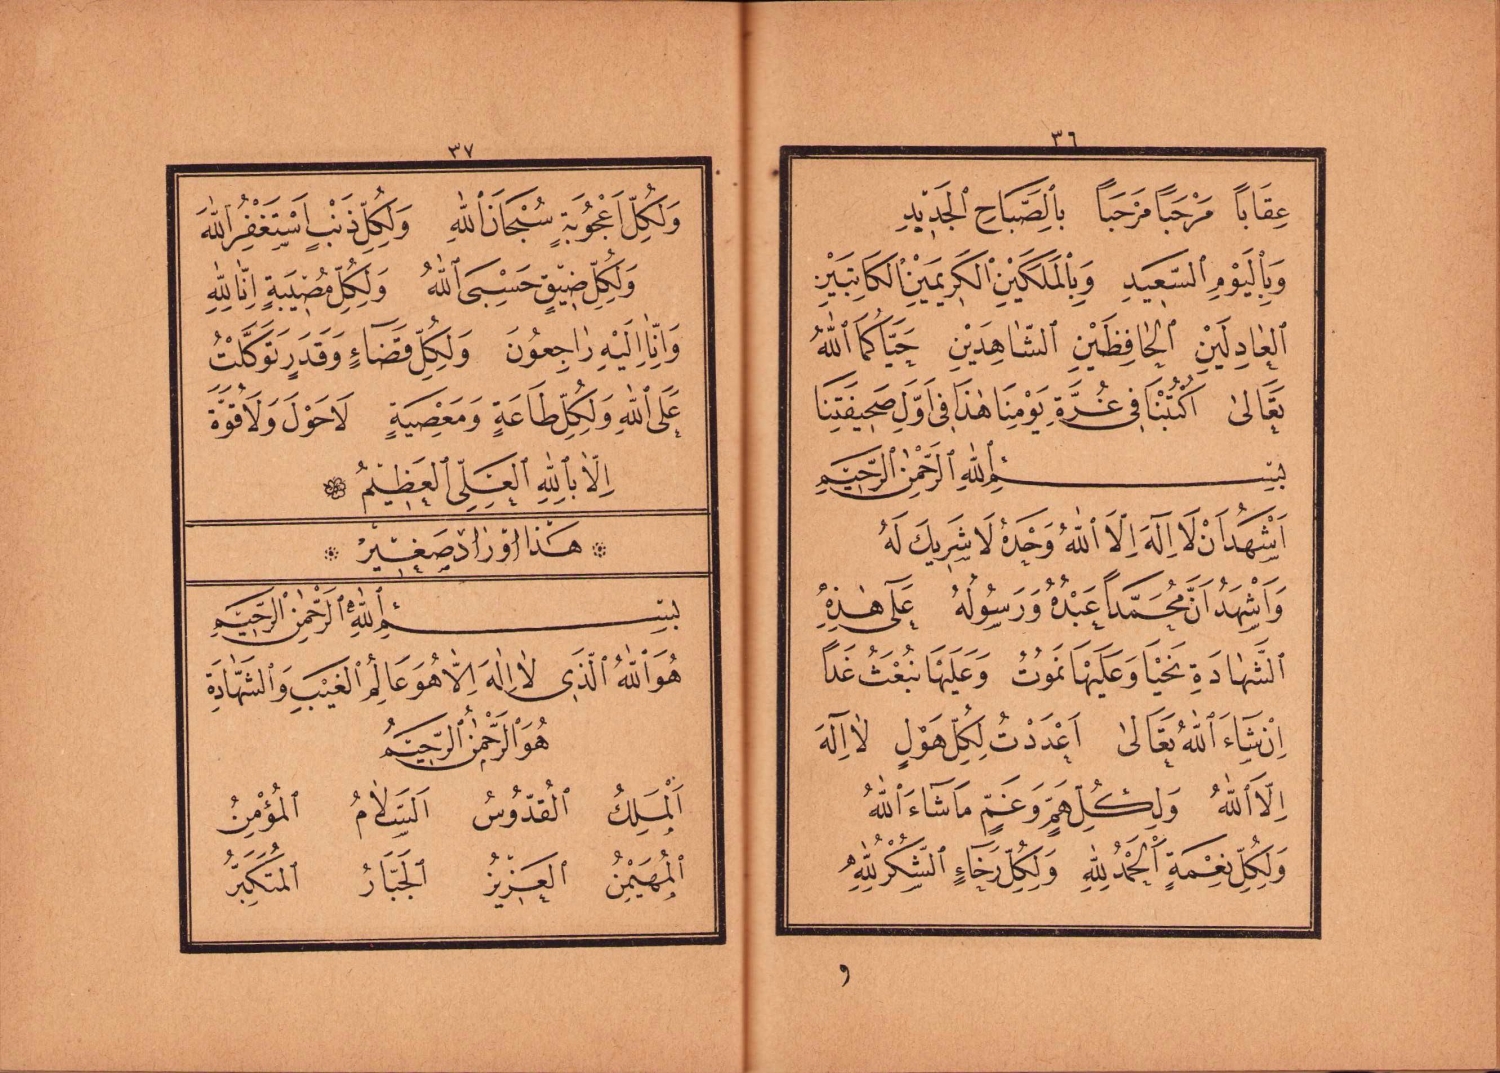 ٣٦
عِقَابًا مَرْحَبًا مَرْحَبًا بِالصَّبَاحِ الْجَدِيدِ
وَبِالْيَوْمِ السَّعِيدِ وَبِالْمَلَكَيْنِ الْكَرِيمَيْنِ الْكَاتِبَيْنِ
الْعَادِلَيْنِ الْحَافِظَيْنِ الشَّاهِدَيْنِ حَيَّاكُمَا اللّٰهُ
تَعَالٰى اُكْتُبْنَا فِى غُرَّةِ يَوْمِنَا هٰذَا فِى اَوَّلِ صَحِيفَتِنَا
بِسْمِ اللّٰهِ الرَّحْمٰنِ الرَّحِيمِ
اَشْهَدُ اَنْ لَا اِلٰهَ اِلَّا اللّٰهُ وَحْدَهُ لَا شَرِيكَ لَهُ
وَاَشْهَدُ اَنَّ مُحَمَّدًا عَبْدُهُ وَرَسُولُهُ عَلٰى هٰذِهِ
الشَّهَادَةِ نَحْيَا وَعَلَيْهَا نَمُوتُ وَعَلَيْهَا نُبْعَثُ غَدًا
اِنْ شَاءَ اللّٰهُ تَعَالٰى اَعْدَدْتُ لِكُلِّ هَوْلٍ لَا اِلٰهَ
اِلَّا اللّٰهُ وَلِكُلِّ هَمٍّ وَغَمٍّ مَاشَاءَ اللّٰهُ
وَلِكُلِّ نِعْمَةٍ اَلْحَمْدُ لِلّٰهِ وَلِكُلِّ رَخَاءٍ الشُّكْرُ لِلّٰهِ
و
٣٧
وَلِكُلِّ اَعْجُوبَةٍ سُبْحَانَ اللّٰهِ وَلِكُلِّ ذَنْبٍ اَسْتَغْفِرُ اللّٰهَ
وَلِكُلِّ ضِيْقٍ حَسْبِىَ اللّٰهُ وَلِكُلِّ مُصِيبَةٍ اِنَّا لِلّٰهِ
وَاِنَّا اِلَيْهِ رَاجِعُونَ وَلِكُلِّ قَضَاءٍ وَقَدَرٍ تَوَكَّلْتُ
عَلَى اللّٰهِ وَلِكُلِّ طَاعَةٍ وَمَعْصِيَةٍ لَا حَوْلَ وَلَا قُوَّةَ
اِلَّا بِاللّٰهِ الْعَلِىِّ الْعَظِيْمُ
هٰذَا اوْرَادِ صَغِيْرْ
بِسْمِ اللّٰهِ الرَّحْمٰنِ الرَّحِيمِ
هُوَ اللّٰهُ الَّذِى لَا اِلٰهَ اِلَّا هُوَ عَالِمُ الْغَيْبِ وَالشَّهَادَةِ
هُوَ الرَّحْمٰنُ الرَّحِيمُ
اَلْمَلِكُ الْقُدُّوسُ اَلسَّلَامُ الْمُؤْمِنُ
الْمُهَيْمِنُ الْعَزِيْزُ الْجَبَّارُ الْمُتَكَبِّرُ